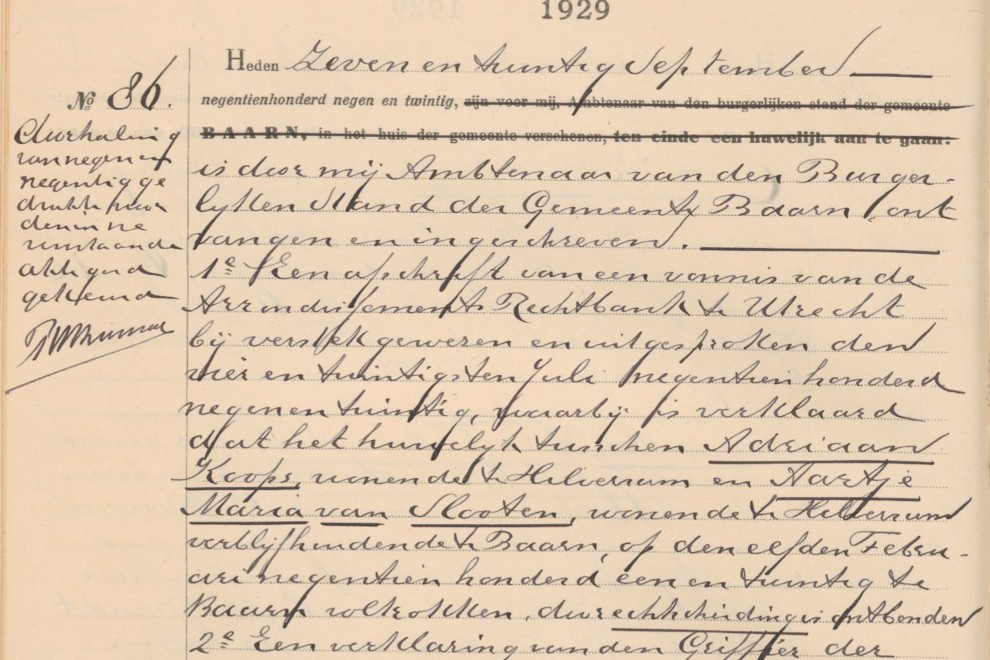 1929
Heden Zeven en twintig September
negentienhonderd negen en twintig, zijn voor mij, Ambtenaar van den burgerlijken stand der gemeente
BAARN, in het huis der gemeente verschenen, ten einde een huwelijk aan te gaan:
is door mij Ambtenaar van den Burger-
lyken Stand der Gemeente Baarn, ont
vangen en ingeschreven.
1e Een afschrift van een vonnis van de
Arrondissements Rechtbank te Utrecht
bij verstek gewezen en uitgesproken den
vier en twintigsten Juli negentienhonderd
negen en twintig, waarbij is verklaard
dat het huwelyk tusschen Adriaan
Koops, wonende te Hilversum en Aartje
Maria van Slooten, wonende te Hilversum
verblijfhoudende te Baarn, op den elfden Febru-
ari negentien honderd een en twintig te
Baarn voltrokken, door echtscheiding is ontbonden
2e Een verklaring van den Griffier der
No 86.
Doorhaling
van negen en
negentig ge
drukte woor
den in ne
venstaande
akte goed
gekeurd